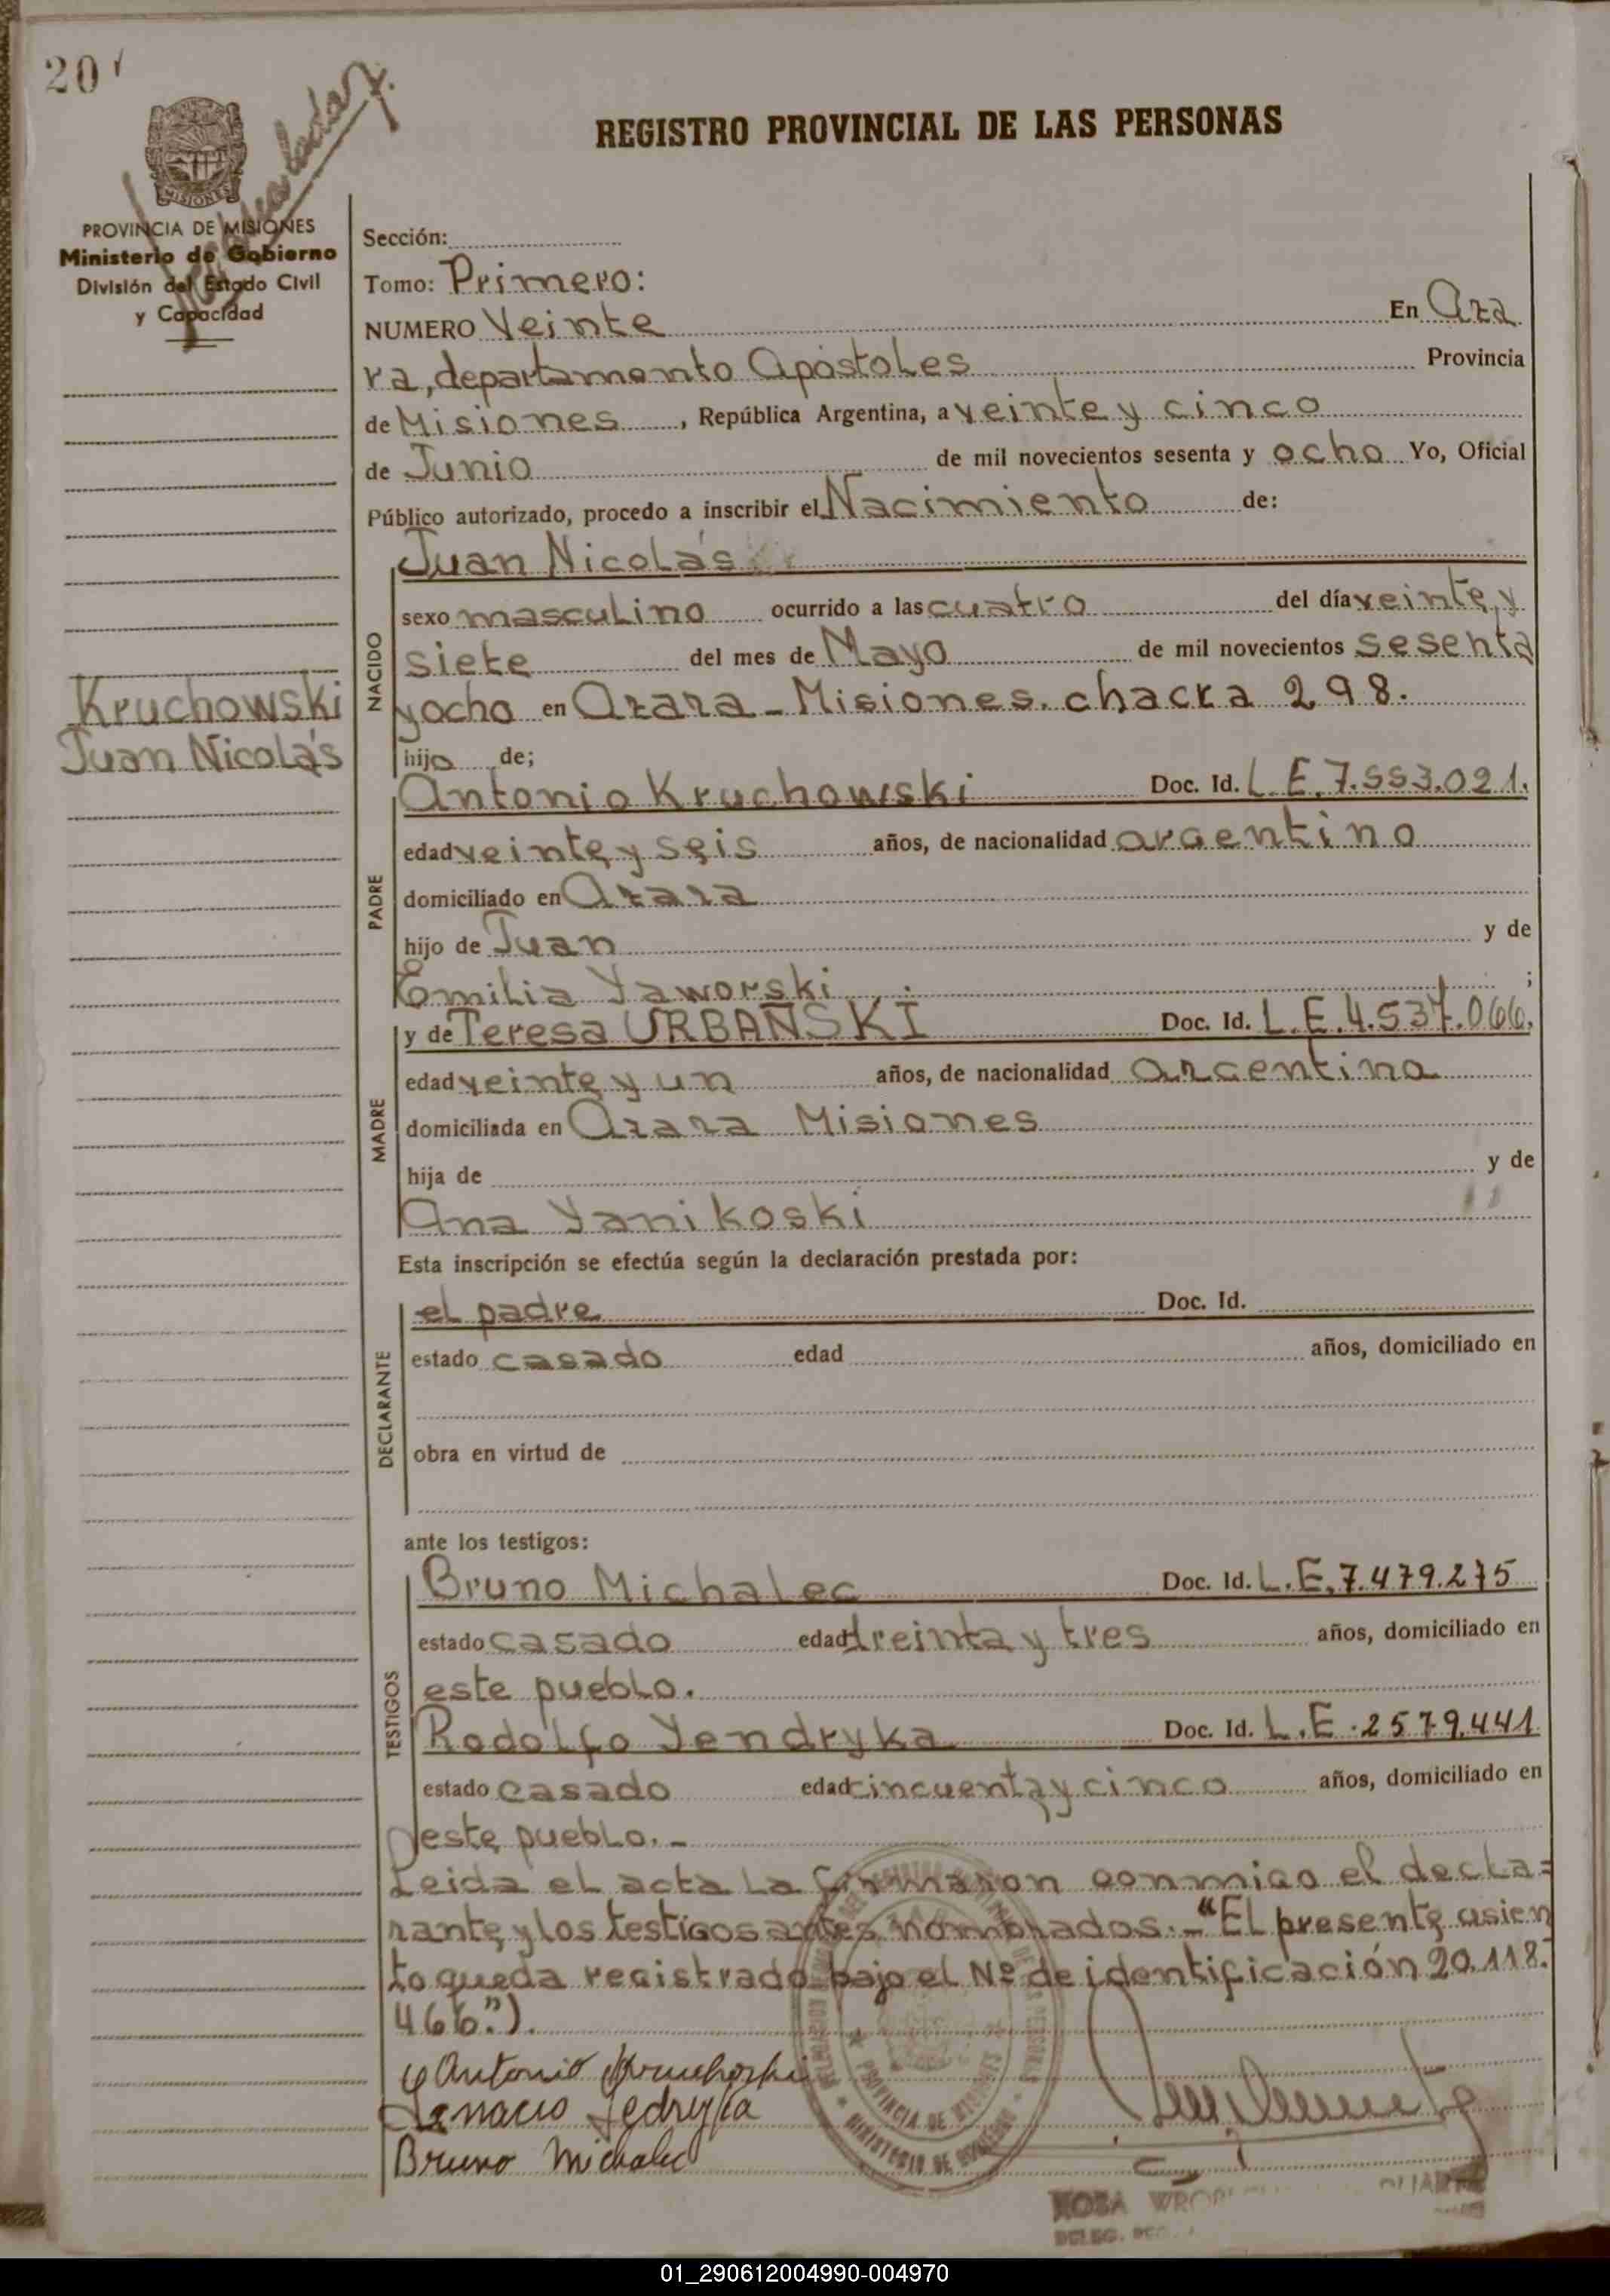 20
REGISTRO PROVINCIAL DE LAS PERSONAS
MISIONES
PROVINCIA DE MISIONES
Ministerio de Gobierno
División del Estado Civil
y Capacidad
Sección:
Tomo: Primero:
NUMERO Veinte En Aza
ra, departamento Apóstoles Provincia
de Misiones, República Argentina, a veinte y cinco
de Junio de mil novecientos sesenta y ocho Yo, Oficial
Público autorizado, procedo a inscribir el Nacimiento de:
Juan Nicolás
NACIDO
sexo masculino ocurrido a las cuatro del día veinte y
siete del mes de Mayo de mil novecientos sesenta
y ocho en Azara - Misiones. chacra 298.
Kruchowski
Juan Nicolás
hijo de;
Antonio Kruchowski Doc. Id. L E. 7.553.021.
PADRE
edad veinte y seis años, de nacionalidad argentino
domiciliado en Azara
hijo de Juan y de
Emilia Yaworski ;
y de Teresa URBAÑSKI Doc. Id. L.E. 4.537.066.
MADRE
edad veinte y un años, de nacionalidad argentina
domiciliada en Azara Misiones
hija de y de
Ana Yanikoski
Esta inscripción se efectúa según la declaración prestada por:
DECLARANTE
el padre Doc. Id.
estado casado edad años, domiciliado en
obra en virtud de
ante los testigos:
TESTIGOS
Bruno Michalec Doc. Id. L.E. 7.479.275
estado casado edad treinta y tres años, domiciliado en
este pueblo.
Rodolfo Yendryka Doc. Id. L.E. 2579.441.
estado casado edad cincuenta y cinco años, domiciliado en
este pueblo. -
Leida el acta la firmaron conmigo el decla=
rante y los testigos antes nombrados. - "El presente asien
to queda registrado bajo el Nº de identificación 20.118.
466.").
Antonio Kruchoski
Ignacio Jedryka
Bruno Michalec
PROVINCIA DE MISIONES
MINISTERIO DE GOBIERNO
ROSA
DELEG.
01_290612004990-004970